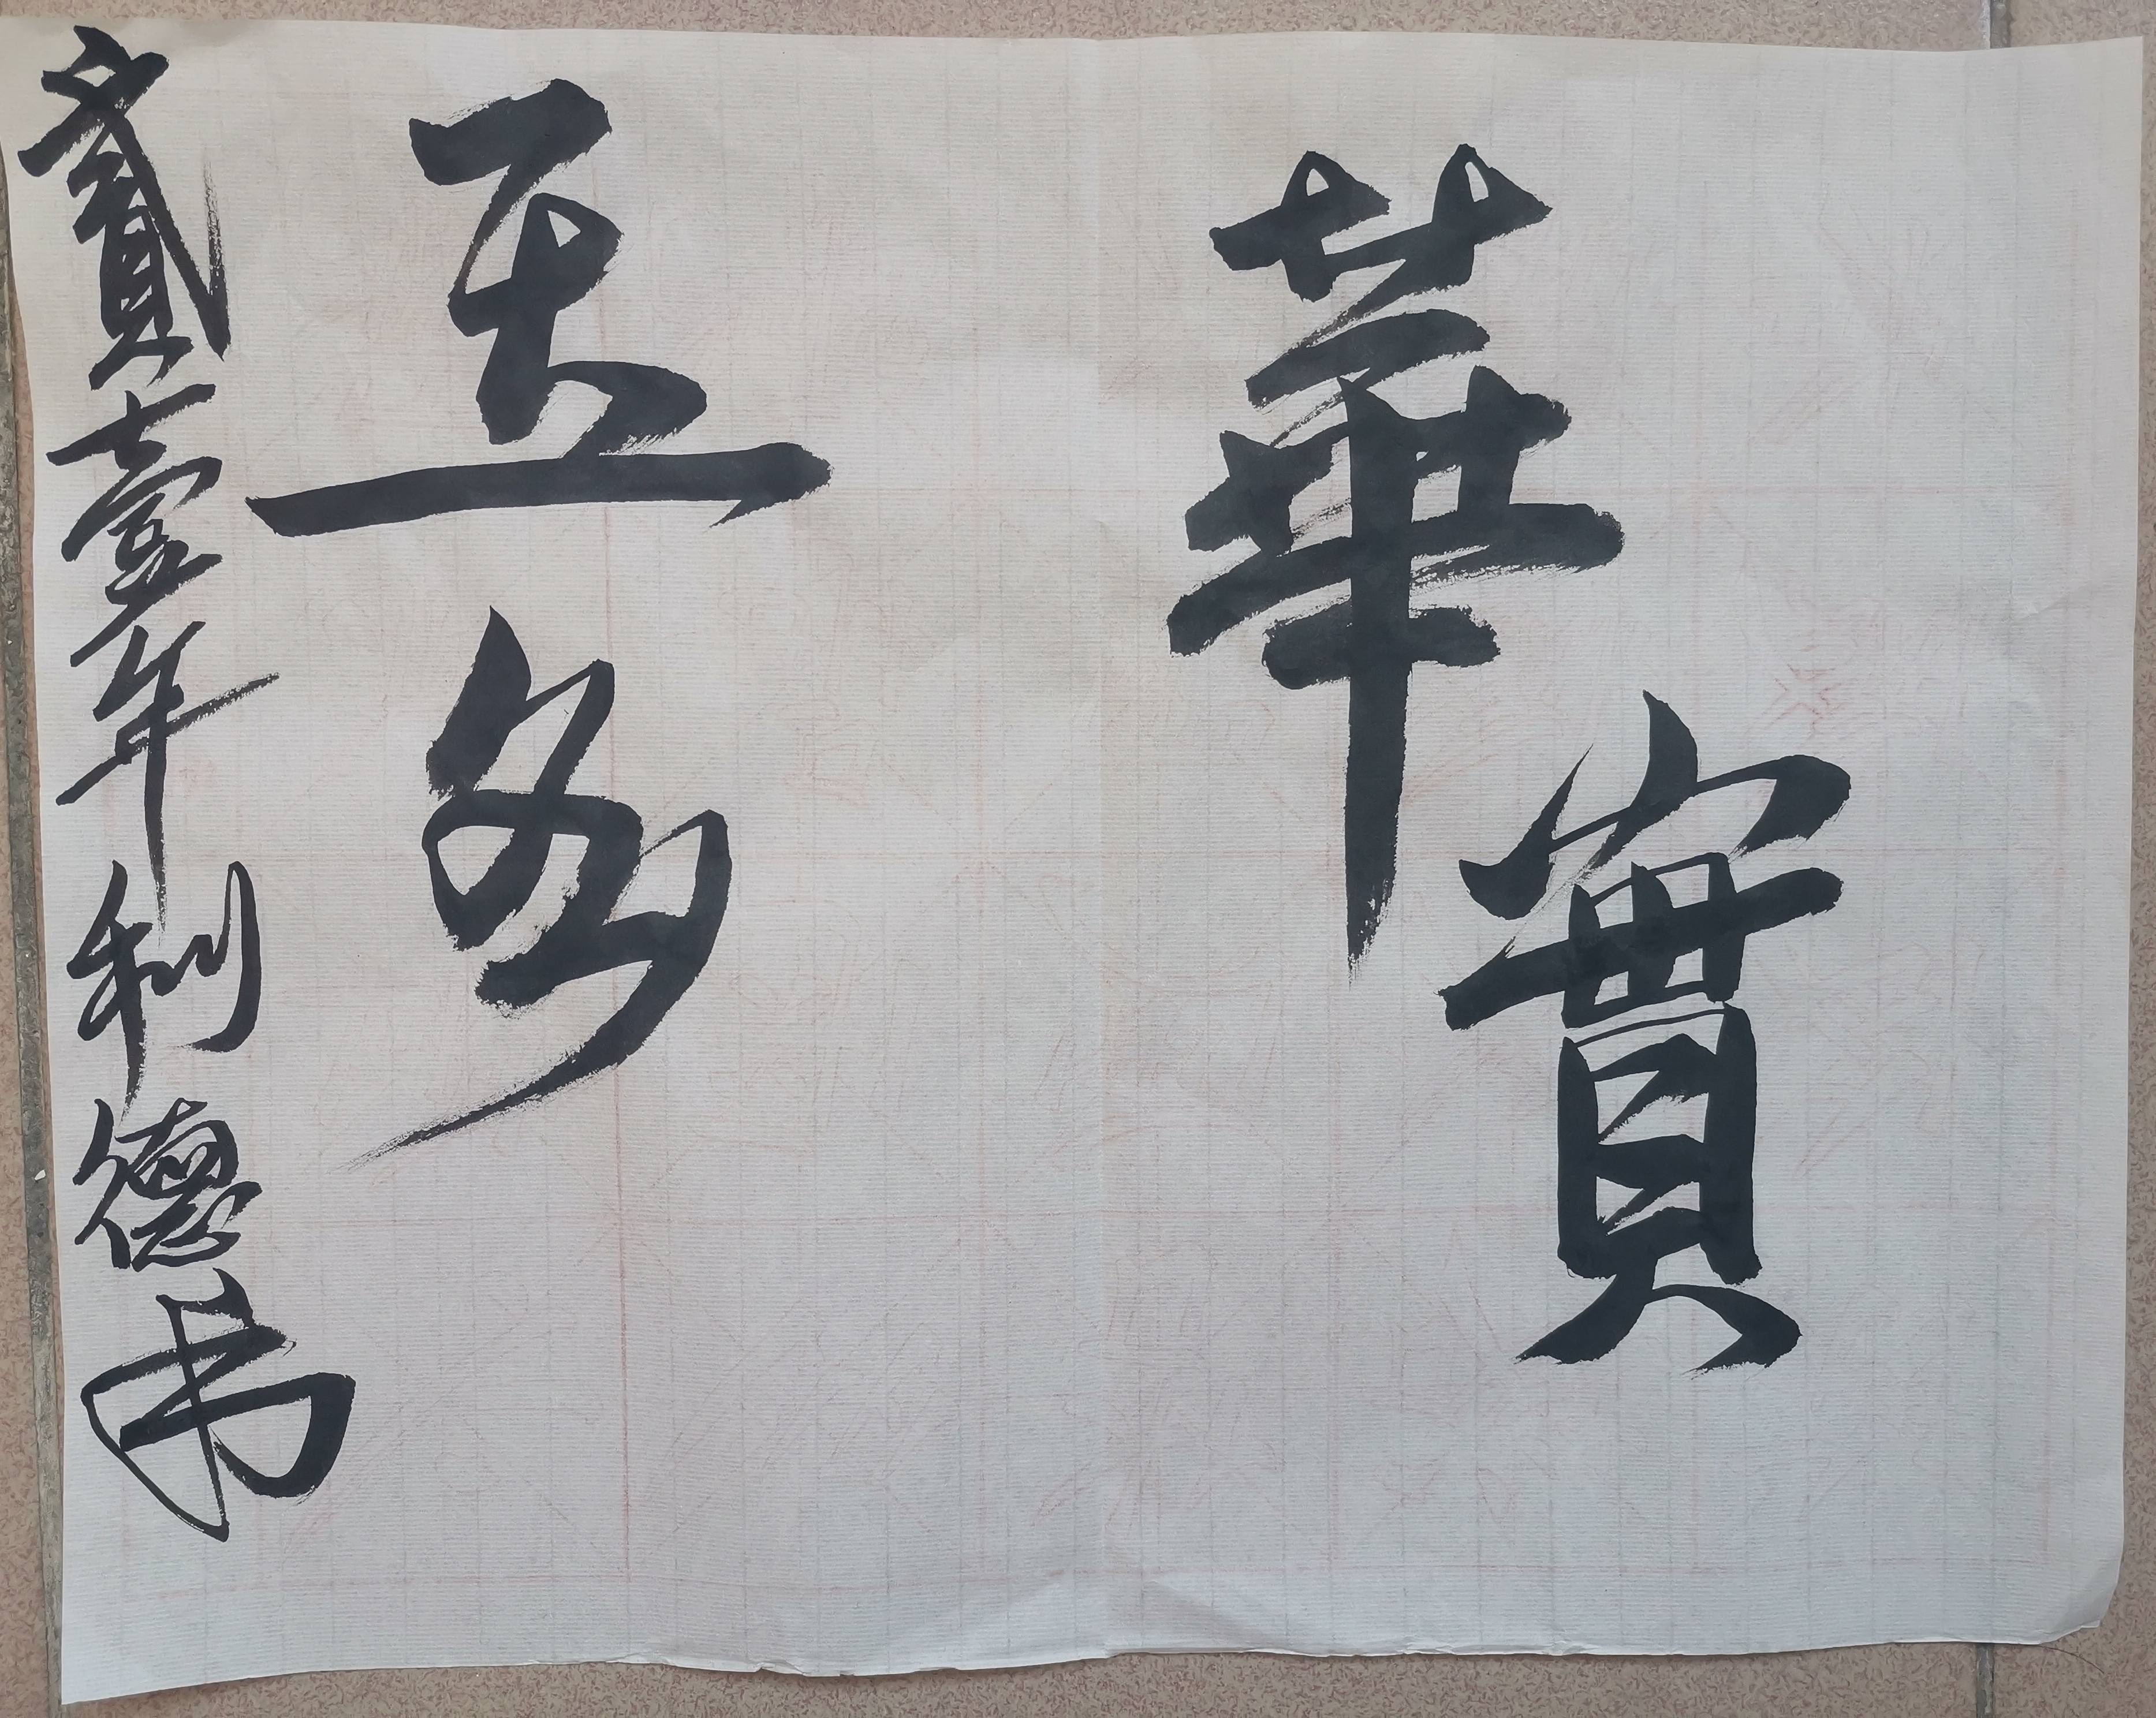 華實
多
貳壹年利德书